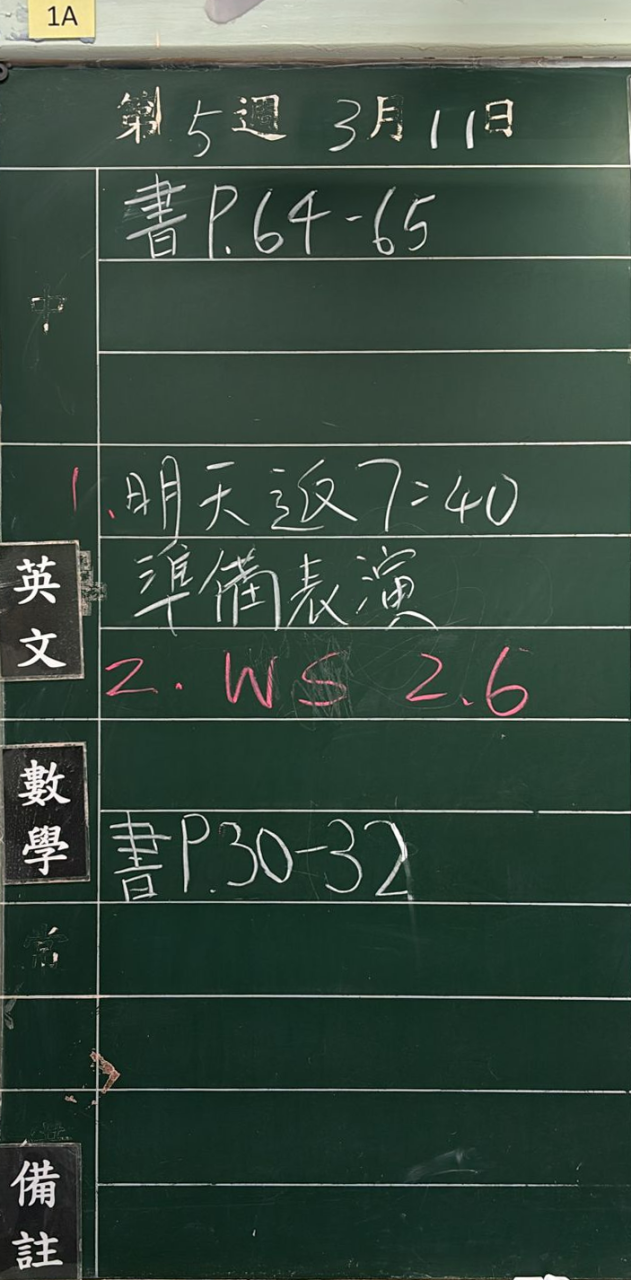 1A
第5週 3月11日
中
書P.64-65
1.明天返7:40
準備表演
英文
2. WS 2.6
數學
書P.30-32
常
備註